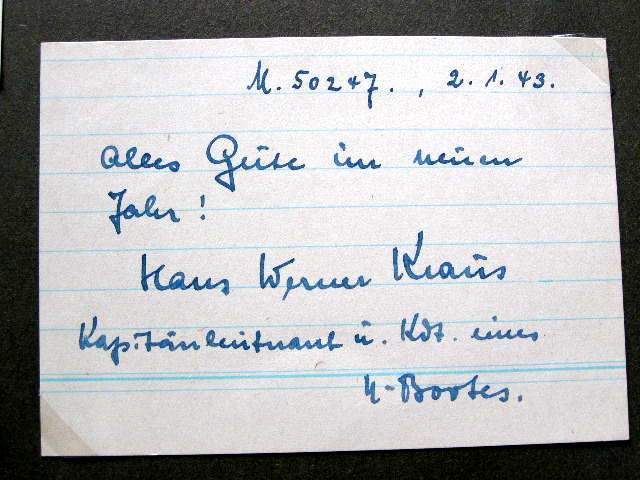 M. 50247. , 2. 1. 43.
Alles Gute im neuen
Jahr!
Hans Werner Kraus
Kapitänleutnant u. Kdt. eines
U-Bootes.